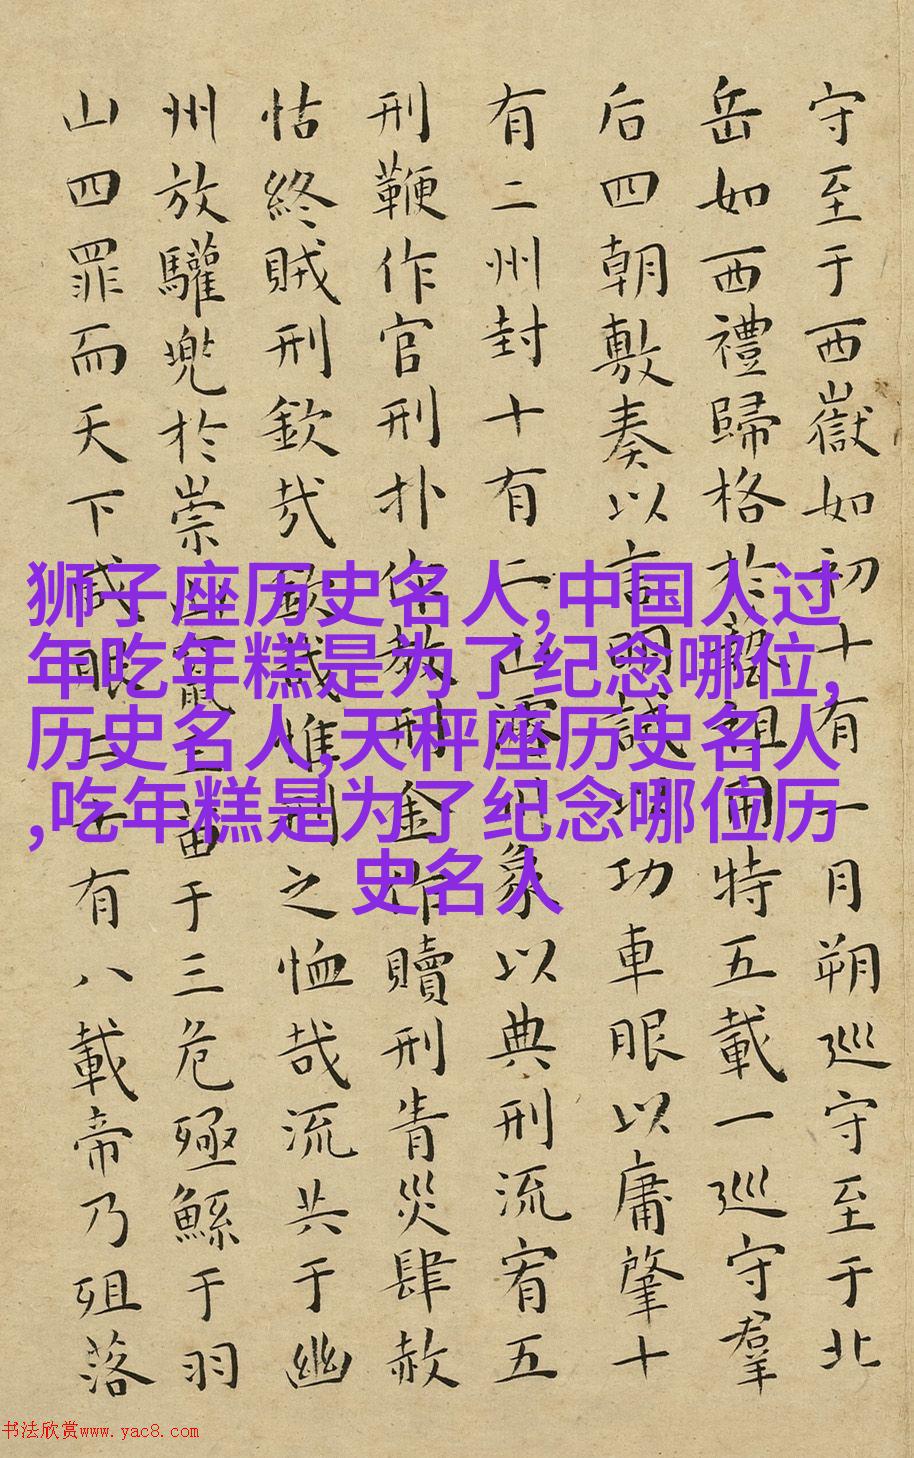 守至于西嶽如初十有一月朔巡守至于北
岳如西禮歸格於藝祖用特五載一巡守羣
后四朝敷奏以言明試以功車服以庸肇十
有二州封十有二山濬川象以典刑流宥五
刑鞭作官刑扑作教刑金作贖刑眚災肆赦
怙終賊刑欽哉欽哉惟刑之恤哉流共于幽
州放驩兜於崇山竄三苗于三危殛鯀于羽
山四罪而天下咸服二十有八載帝乃殂落
狮子座历史名人,中国人过
年吃年糕是为了纪念哪位,
历史名人,天秤座历史名人
,吃年糕是为了纪念哪位历
史名人
书法欣赏www.yac8.com